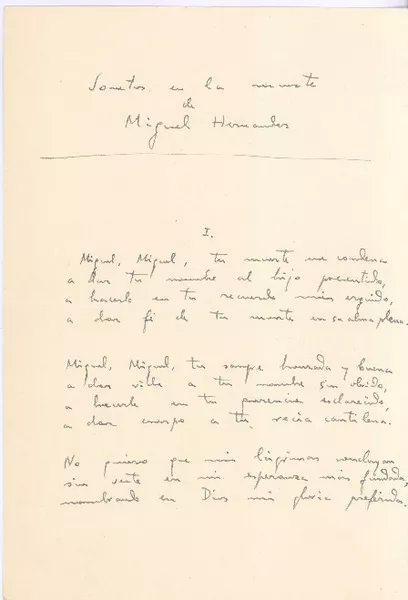 Sonetos en la muerte
de
Miguel Hernandez
I.
Miguel, Miguel, tu muerte me condena
a dar tu nombre al hijo presentido,
a hacerle en tu recuerdo más erguido,
a dar fé de tu muerte en su alma plena.
Miguel, Miguel, tu sangre honrada y buena
a dar vida a tu nombre sin olvido,
a hacerle en tu presencia esclarecido,
a dar cuerpo a tu recia cantilena.
No quiero que mis lágrimas concluyan
sin verte en mi esperanza más fundada,
nombrando en Dios mi gloria preferida.